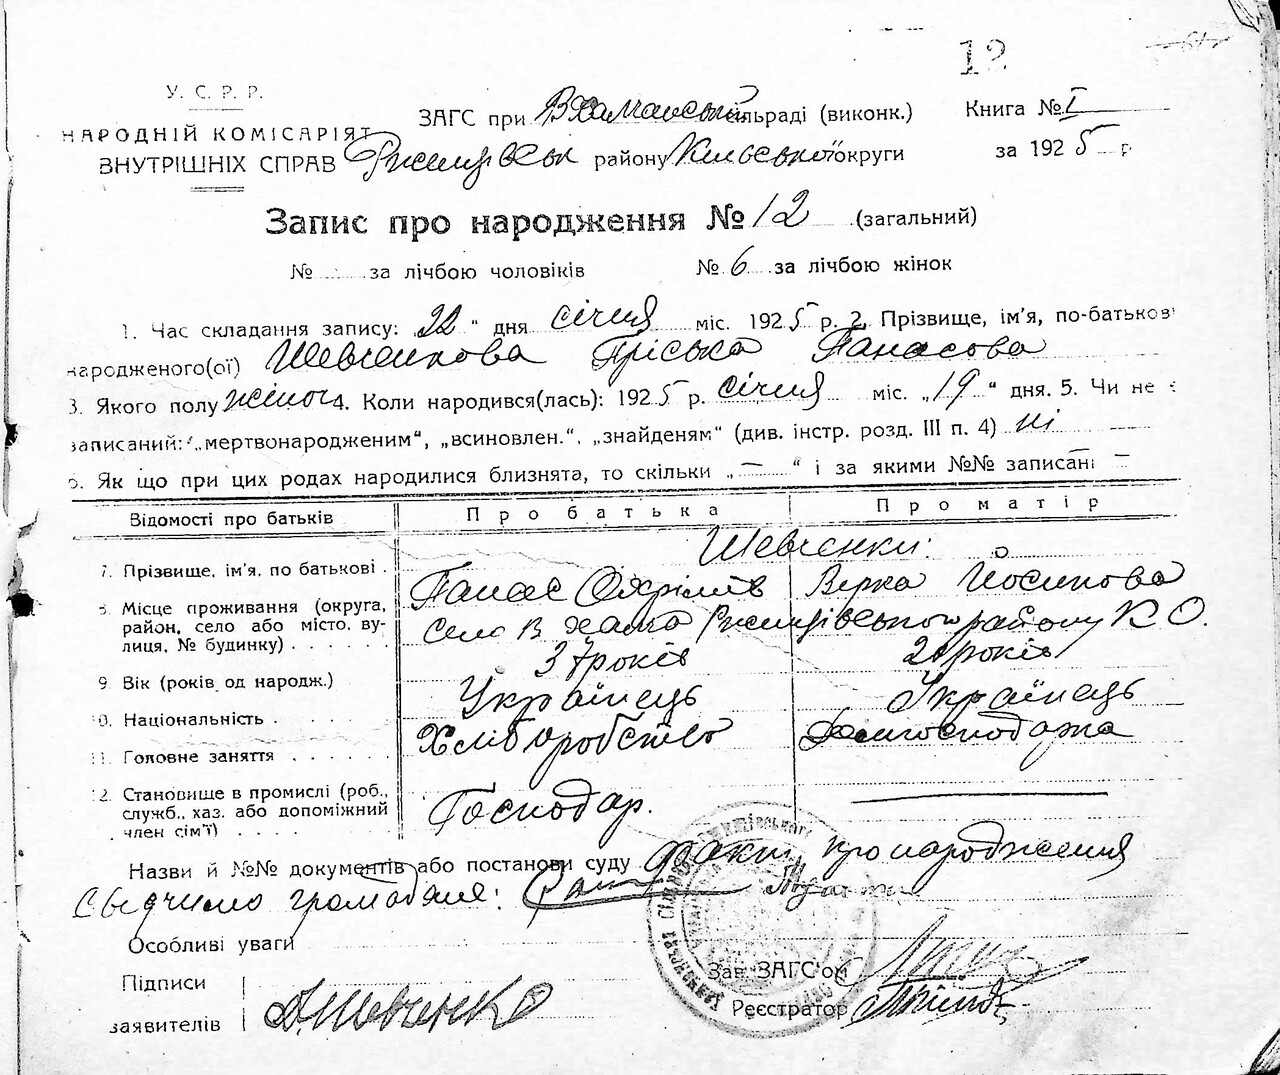 12
У. С. Р. Р.
НАРОДНІЙ КОМІСАРІЯТ
ВНУТРІШНІХ СПРАВ
ЗАГС при сільраді (виконк.)
району Київської округи
Книга № I
за 1925 р
Запис про народження № 12 (загальний)
№ за лічбою чоловіків № 6 за лічбою жінок
1. Час складання запису: „22“ дня січня міс. 1925 р. 2. Прізвище, ім'я, по-батькові
народженого(ої) Шевченкова Пріська Панасова
3. Якого полу жіноч 4. Коли народився(лась): 1925 р. січня міс. „19“ дня. 5. Чи не є
записаний: „мертвонародженим“, „всиновлен.“, „знайденям“ (див. інстр. розд. III п. 4) ні
6. Як що при цих родах народилися близнята, то скільки „—“ і за якими №№ записані —
Відомості про батьків Про батька Про матір
Шевченки:
7. Прізвище, ім'я, по батькові . Панас Охрімів Вірка Йосипова
8. Місце проживання (округа, район, село або місто, вулиця, № будинку) . . . . . . село В Халча Ржищівського району К. О.
9. Вік (років од народж.) 37 років років
10. Національність . . . . . Українець Українець
11. Головне заняття . . . . . . Хліборобство Домгосподарка
12. Становище в промислі (роб., служб., хаз. або допоміжний член сім'ї) . . . . Господар. —
Назви й №№ документів або постанови суду факт про народження
громадяне:
Особливі уваги
Підписи
заявителів Шевченко
Зав. ЗАГС'ом
Реєстратор